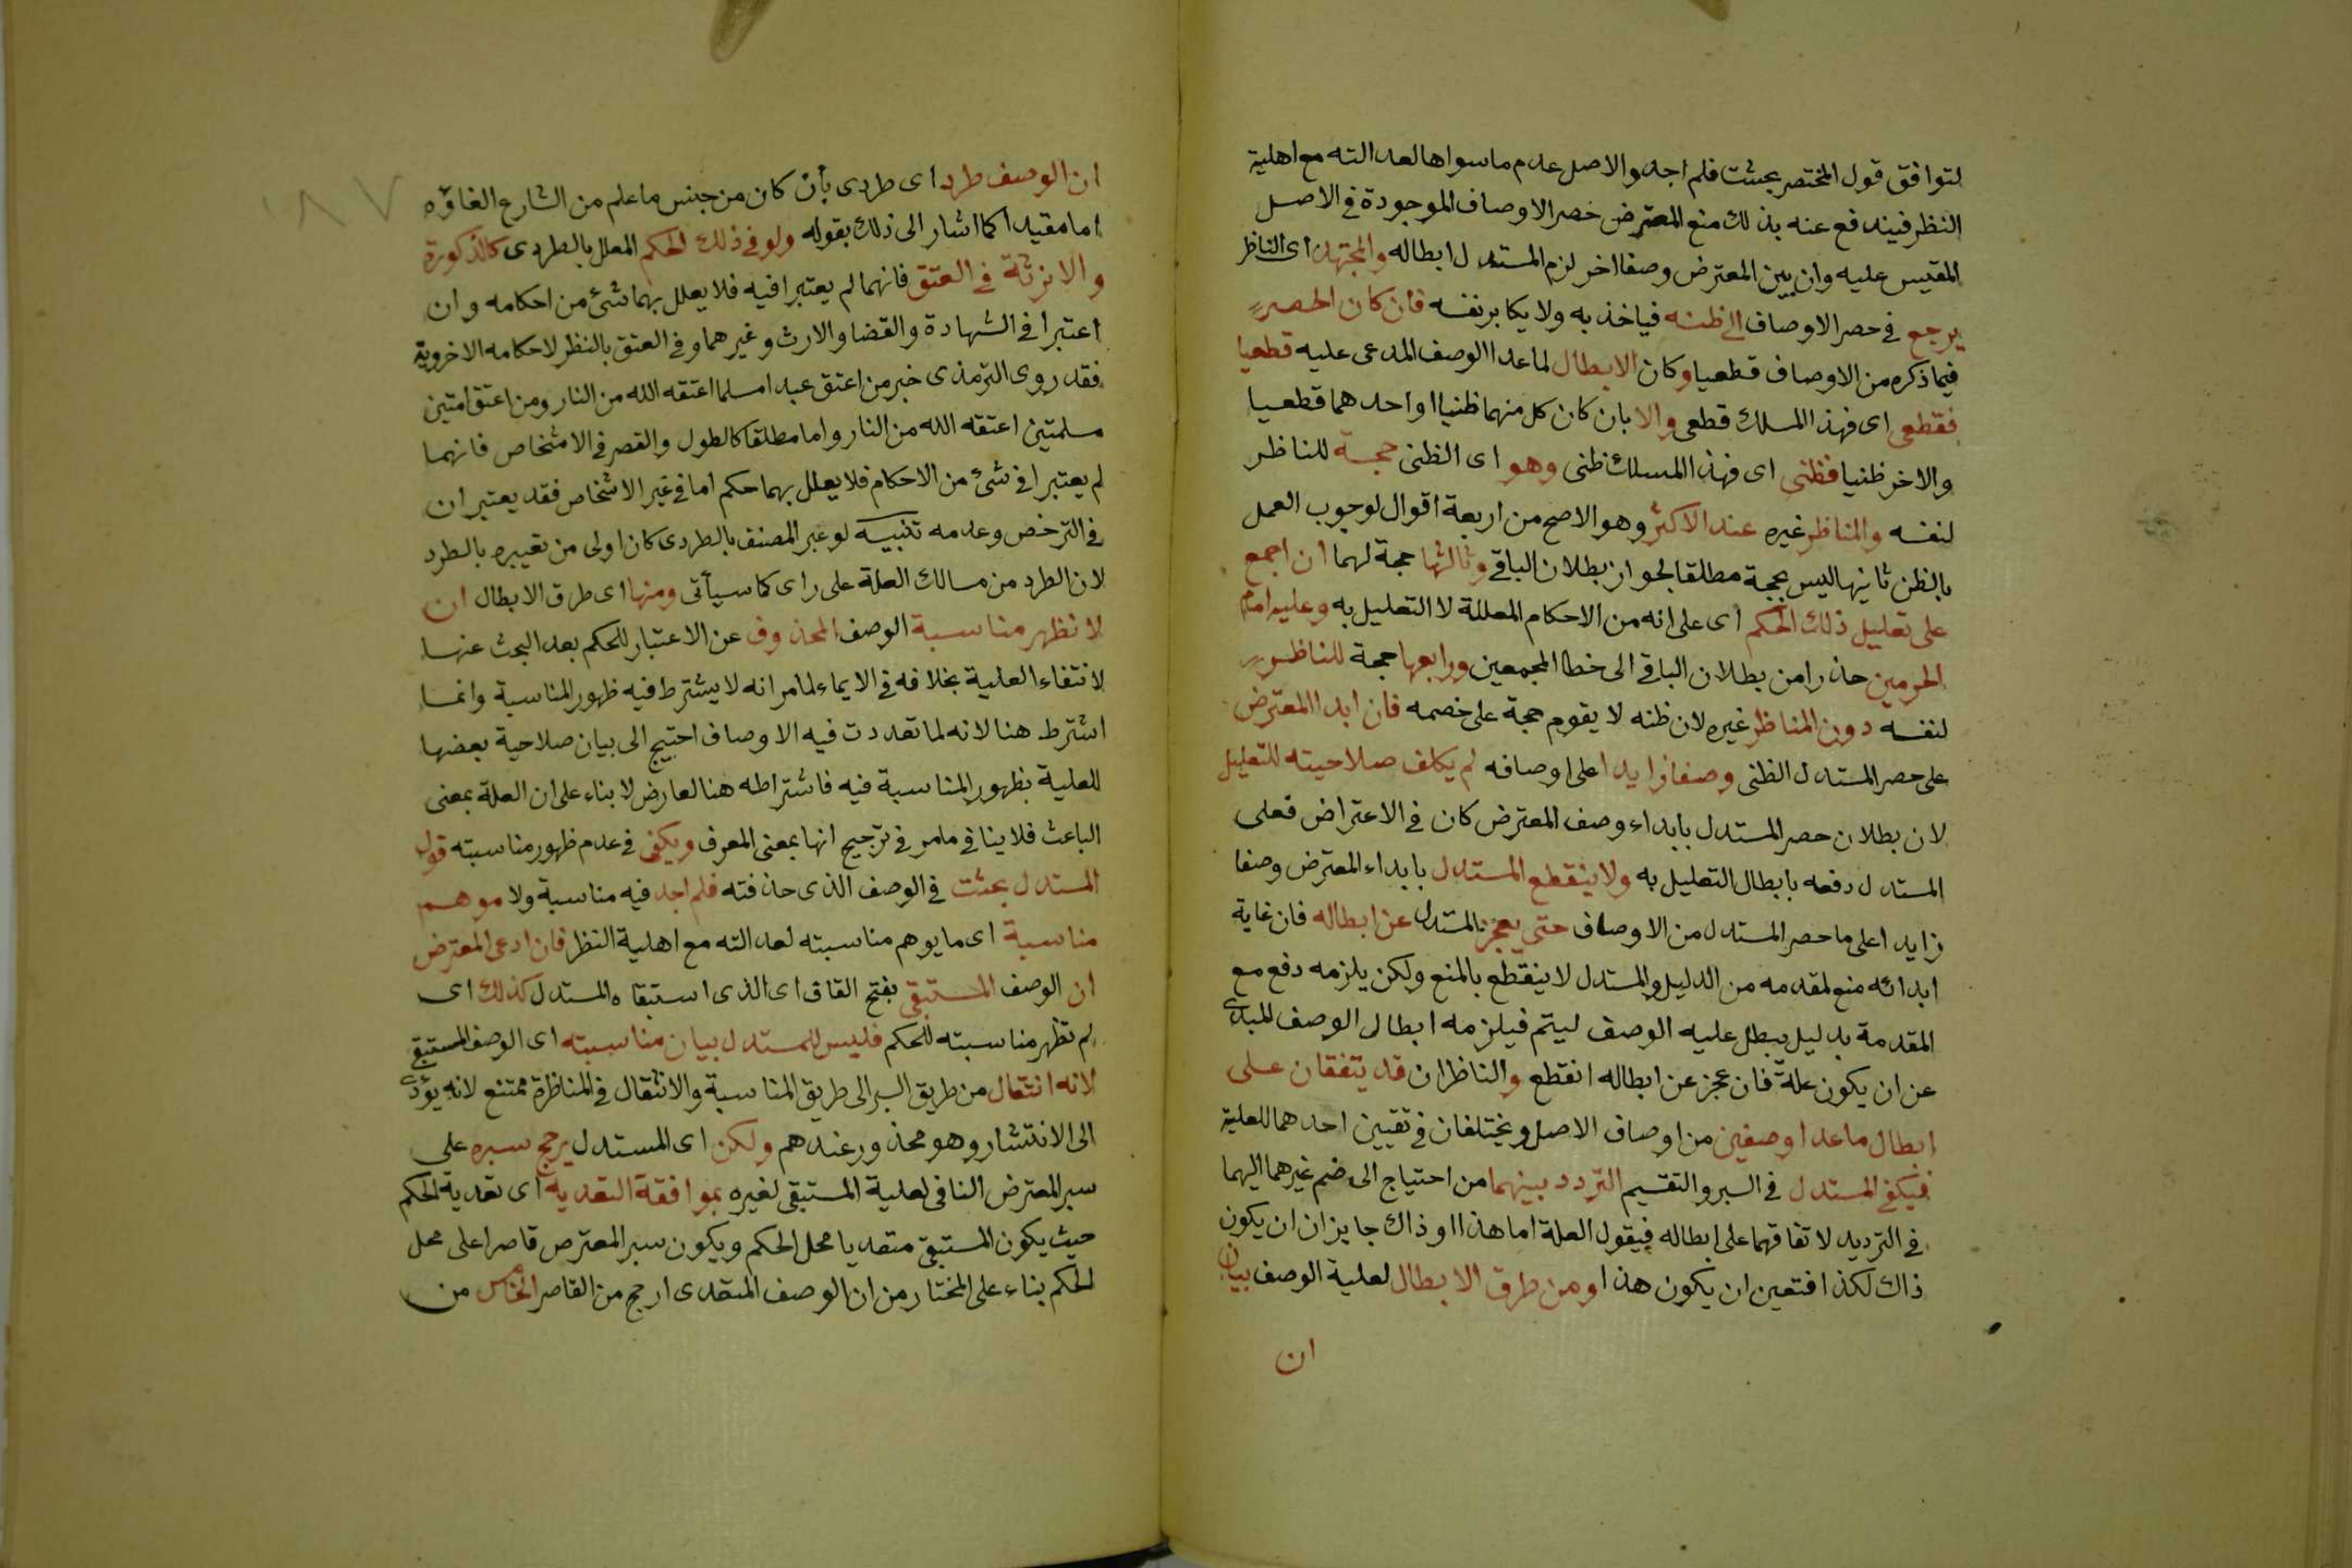 لتوافق قول المختصر بحثت فلم اجد والاصل عدم ماسواها لعدالته مع اهلية
النظر فيندفع عنه بذلك منع المعترض حصر الاوصاف الموجودة في الاصل
المقيس عليه وان بين المعترض وصفا اخر لزم المستدل ابطاله والمجتهد اى الناظر
يرجع في حصر الاوصاف الى ظنه فياخذ به ولا يكابر نفسه فان كان الحصر
فيما ذكره من الاوصاف قطعيا وكان الابطال لما عدا الوصف المدعى عليه قطعيا
فقطعى اى فهذا المسلك قطعى والا بان كان كل منهما ظنيا او احدهما قطعيا
والاخر ظنيا فظني اى فهذا المسلك ظنى وهو اى الظنى حجة للناظر
لنفسه والمناظر غيره عند الاكثر وهو الاصح من اربعة اقوال لوجوب العمل
بالظن ثانيها ليس بحجة مطلقا لجواز بطلان الباقي وثالثها حجة لهما ان اجمع
على تعليل ذلك الحكم اى على انه من الاحكام المعللة لا التعليل به وعليه امام
الحرمين حذرا من بطلان الباقي الى خطا المجمعين ورابعها حجة للناظر
لنفسه دون المناظر غيره لان ظنه لا يقوم حجة على خصمه فان ابدا المعترض
على حصر المستدل الظنى وصفا زايدا على اوصافه لم يكلف صلاحيته للتعليل
لان بطلان حصر المستدل بابداء وصف المعترض كان في الاعتراض فعلى
المستدل دفعه بابطال التعليل به ولا ينقطع المستدل بابداء المعترض وصفا
زايدا على ما حصر المستدل من الاوصاف حتى يعجز المستدل عن ابطاله فان غاية
ابدائه منع لمقدمه من الدليل والمستدل لا ينقطع بالمنع ولكن يلزمه دفع مع
المقدمة بدليل يبطل عليه الوصف ليتم فيلزمه ابطال الوصف المبدى
عن ان يكون علة فان عجز عن ابطاله انقطع والناظران قد يتفقان على
ابطال ما عدا وصفين من اوصاف الاصل ويختلفان في تعيين احدهما للعلية
فيكفي المستدل في السبر والتقسيم التردد بينهما من احتياج الى ضم غيرهما اليهما
في الترديد لاتفاقهما على ابطاله فيقول العلة اما هذا او ذاك جايز ان ان يكون
ذاك لكذا فتعين ان يكون هذا ومن طرق الابطال لعلية الوصف بيان
ان
١٨٧
ان الوصف طرد اى طردى بأن كان من جنس ما علم من الشارع الغاؤه
اما مقيدا كما اشار الى ذلك بقوله ولو في ذلك الحكم المعلل بالطردى كالذكورة
والانوثة في العتق فانهما لم يعتبرا فيه فلا يعلل بهما شئ من احكامه وان
اعتبرا في الشهادة والقضا والارث وغيرهما وفي العتق بالنظر لاحكامه الاخروية
فقد روى الترمذى خبر من اعتق عبدا مسلما اعتقه الله من النار ومن اعتق امتين
مسلمتين اعتقه الله من النار واما مطلقا كالطول والقصر في الاشخاص فانهما
لم يعتبرا في شئ من الاحكام فلا يعلل بهما حكم اما في غير الاشخاص فقد يعتبران
في الترخص وعدمه تنبيه لو عبر المصنف بالطردى كان اولى من تعبيره بالطرد
لان الطرد من مسالك العلة على راى كما سيأتى ومنها اى طرق الابطال ان
لا تظهر مناسبة الوصف المحذوف عن الاعتبار للحكم بعد البحث عنها
لانتفاء العلية بخلافه في الايماء لما مر انه لا يشترط فيه ظهور المناسبة وانما
اشترط هنا لانه لما تعددت فيه الاوصاف احتيج الى بيان صلاحية بعضها
للعلية بظهور المناسبة فيه فاشتراطه هنا لعارض لا بناء على ان العلة بمعنى
الباعث فلا ينافي ما مر في ترجيح انها بمعنى المعرف ويكفي في عدم ظهور مناسبته قول
المستدل بحثت في الوصف الذى حذفته فلم اجد فيه مناسبة ولا موهم
مناسبة اى ما يوهم مناسبته لعدالته مع اهلية النظر فان ادعى المعترض
ان الوصف المستبقى بفتح القاف اى الذى استبقاه المستدل كذلك اى
لم تظهر مناسبته للحكم فليس للمستدل بيان مناسبته اى الوصف المستبقى
لانه انتقال من طريق السبر الى طريق المناسبة والانتقال في المناظرة ممتنع لانه يؤدى
الى الانتشار وهو محذور عندهم ولكن اى المستدل يرجح سبره على
سبر المعترض النافى لعلية المستبقى لغيره بموافقة التعدية اى تعدية الحكم
حيث يكون المستبقى متعديا محل الحكم ويكون سبر المعترض قاصرا على محل
الحكم بناء على المختار من ان الوصف المتعدى ارجح من القاصر الخامس من